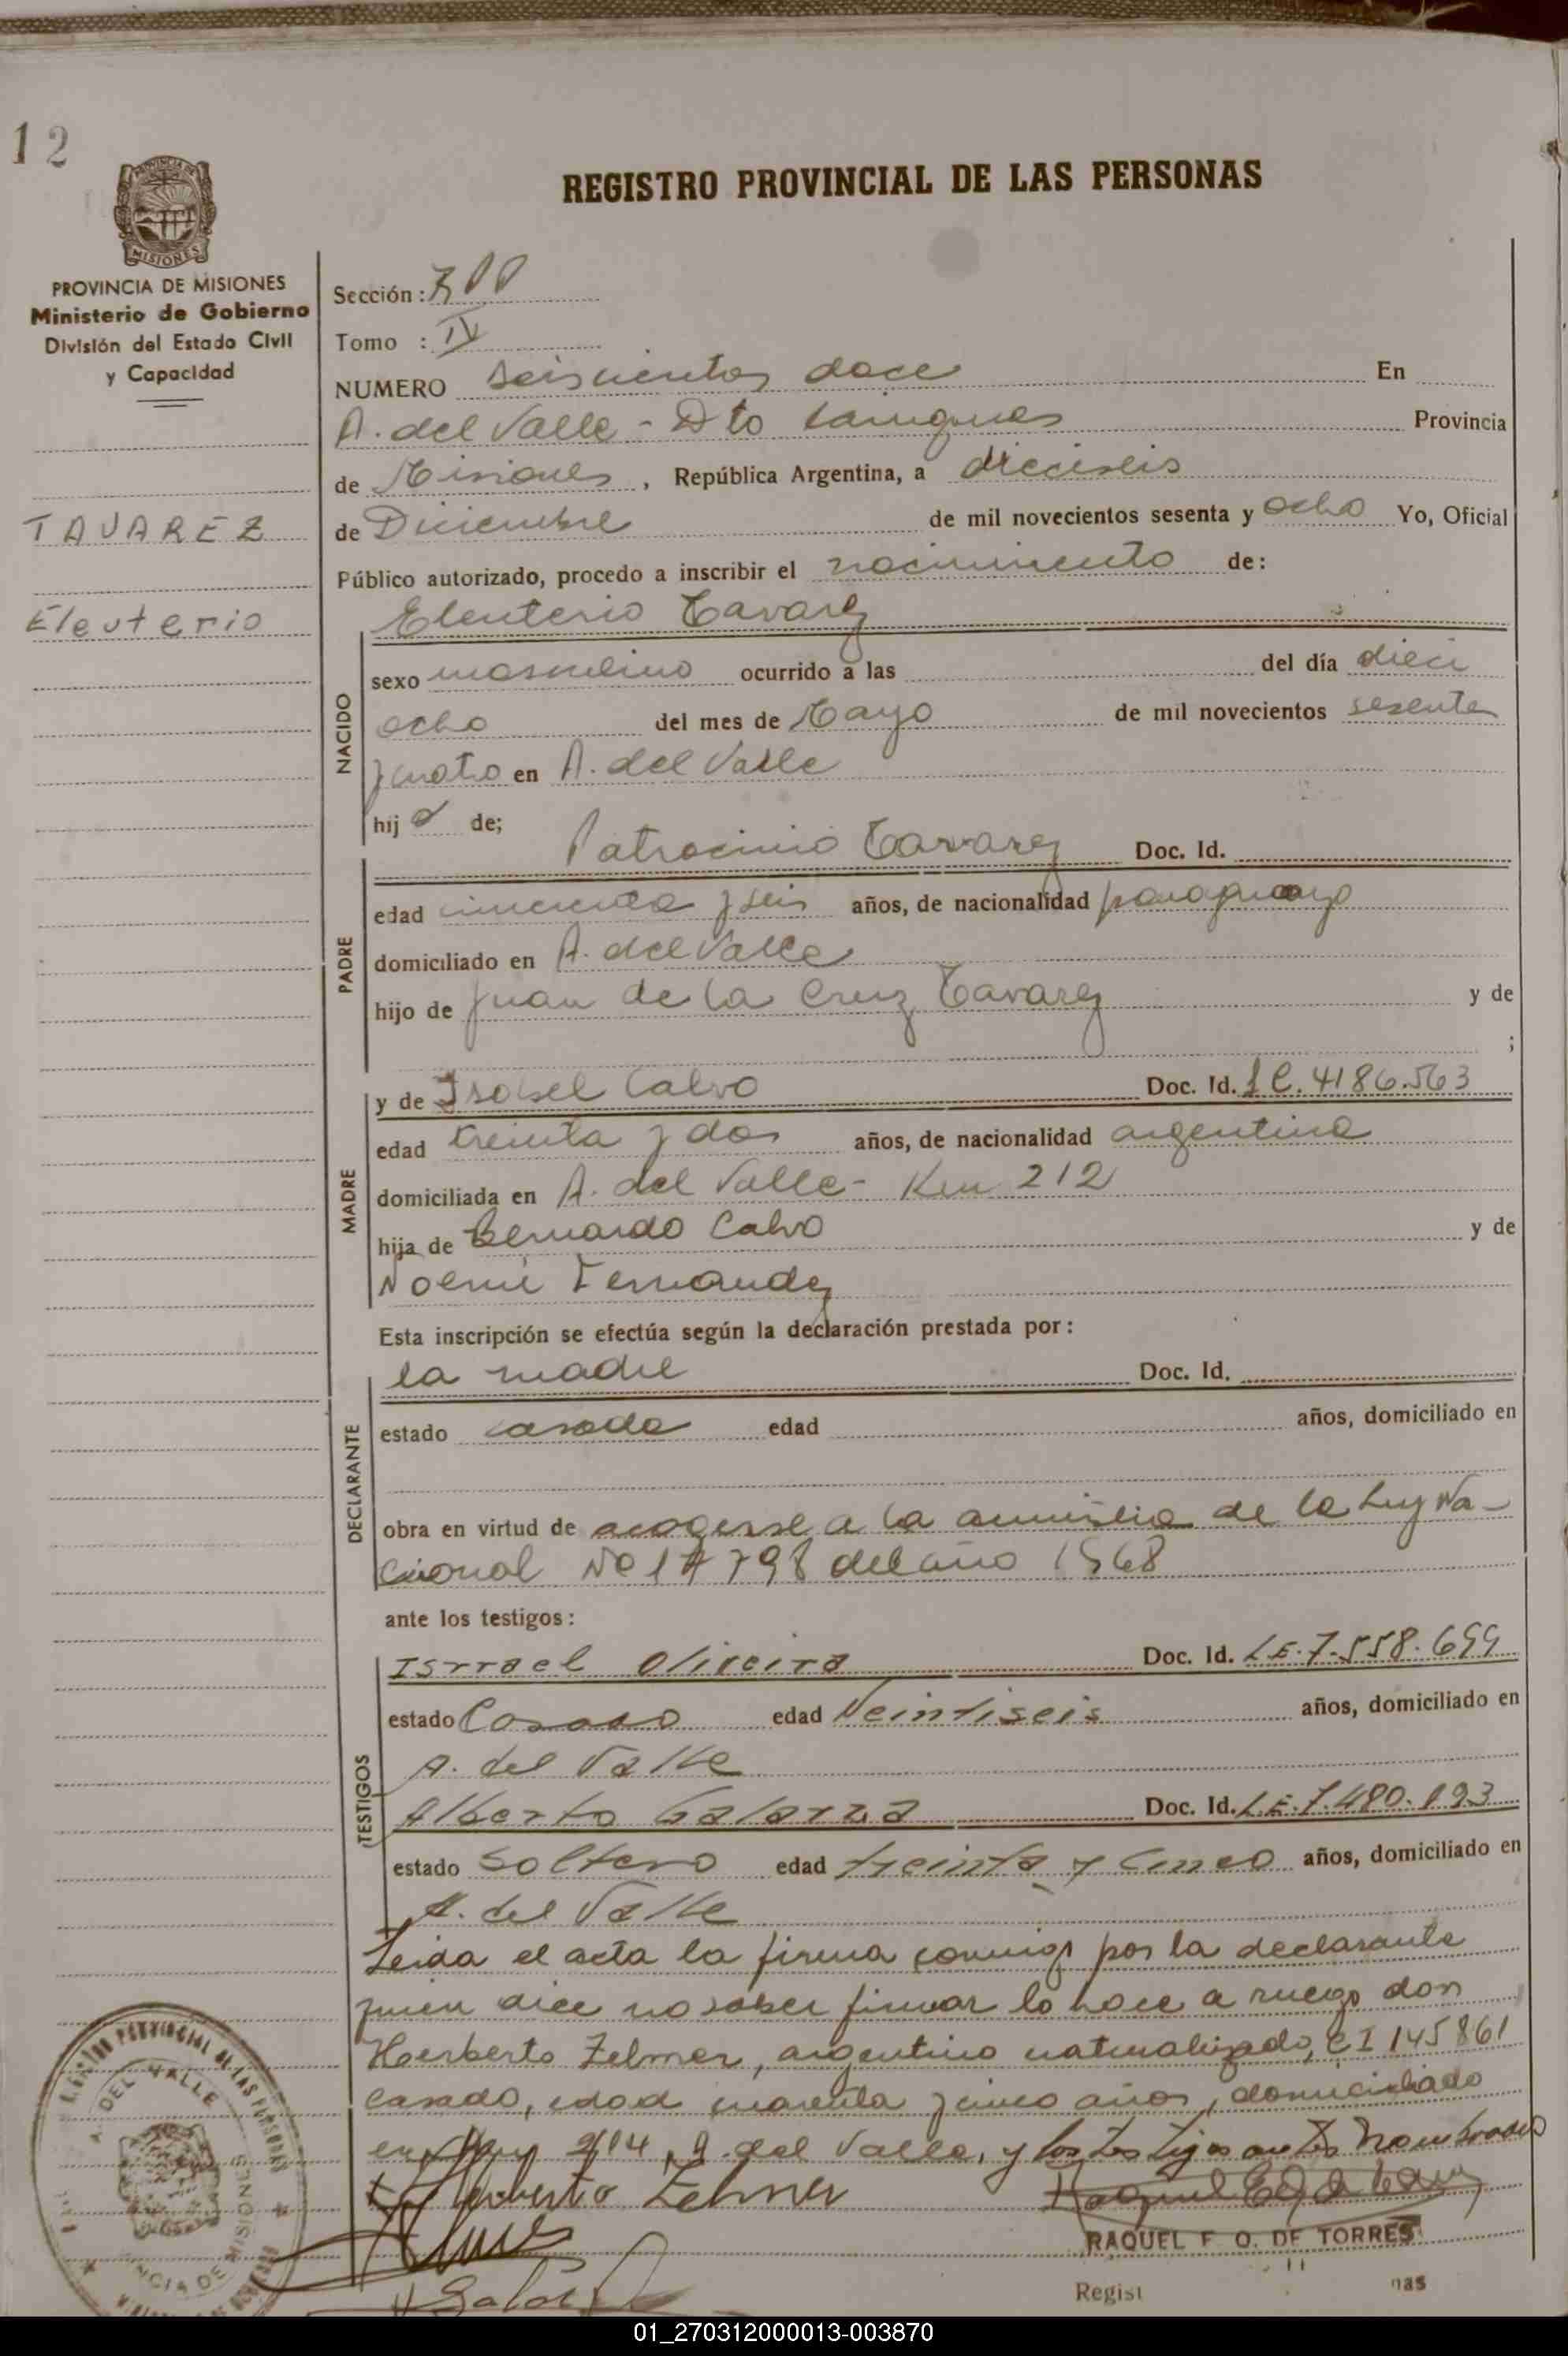 12
PROVINCIA DE
MISIONES
PROVINCIA DE MISIONES
Ministerio de Gobierno
División del Estado Civil
y Capacidad
TAVAREZ
Eleuterio
REGISTRO PROVINCIAL DE LAS PERSONAS
Sección:
Tomo : IV
NUMERO Seiscientos doce En
A. del Valle - Dto Cainguas Provincia
de Misiones, República Argentina, a dieciseis
de Diciembre de mil novecientos sesenta y ocho Yo, Oficial
Público autorizado, procedo a inscribir el nacimiento de:
Eleuterio Tavarez
NACIDO
sexo masculino ocurrido a las del día dieci
ocho del mes de Mayo de mil novecientos sesenta
y cuatro en A. del Valle
hijo de;
PADRE
Patrocinio Tavarez Doc. Id.
edad cincuenta y seis años, de nacionalidad paraguayo
domiciliado en A. del Valle
hijo de Juan de la Cruz Tavarez y de
;
MADRE
y de Isabel Calvo Doc. Id. L C. 4186.563
edad treinta y dos años, de nacionalidad argentina
domiciliada en A. del Valle - Km 212
hija de Bernardo Calvo y de
Noemi Fernandez
Esta inscripción se efectúa según la declaración prestada por:
DECLARANTE
la madre Doc. Id.
estado casada edad años, domiciliado en
obra en virtud de acogerse a la amnistia de la Ley Na-
cional Nº 17798 del año 1968
ante los testigos:
TESTIGOS
Isrrael Oliveira Doc. Id. LE. 7.558.699
estado Casado edad Veintiseis años, domiciliado en
A. del Valle
Alberto Galarza Doc. Id. L.E. 7.480.193
estado Soltero edad treinta y cinco años, domiciliado en
A. del Valle
Leida el acta la firma conmigo por la declarante
quien dice no saber firmar lo hace a ruego don
Herberto Zelmer, argentino naturalizado, CI 145861
casado, edad cuarenta y cinco años, domiciliado
en 214, A. del Valle, y los testigos antes nombrados
Herberto Zelmer
RAQUEL F O. DE TORRES
Regist nas
REGISTRO PROVINCIAL DE LAS PERSONAS
A. DEL VALLE
PROVINCIA DE MISIONES
01_270312000013-003870